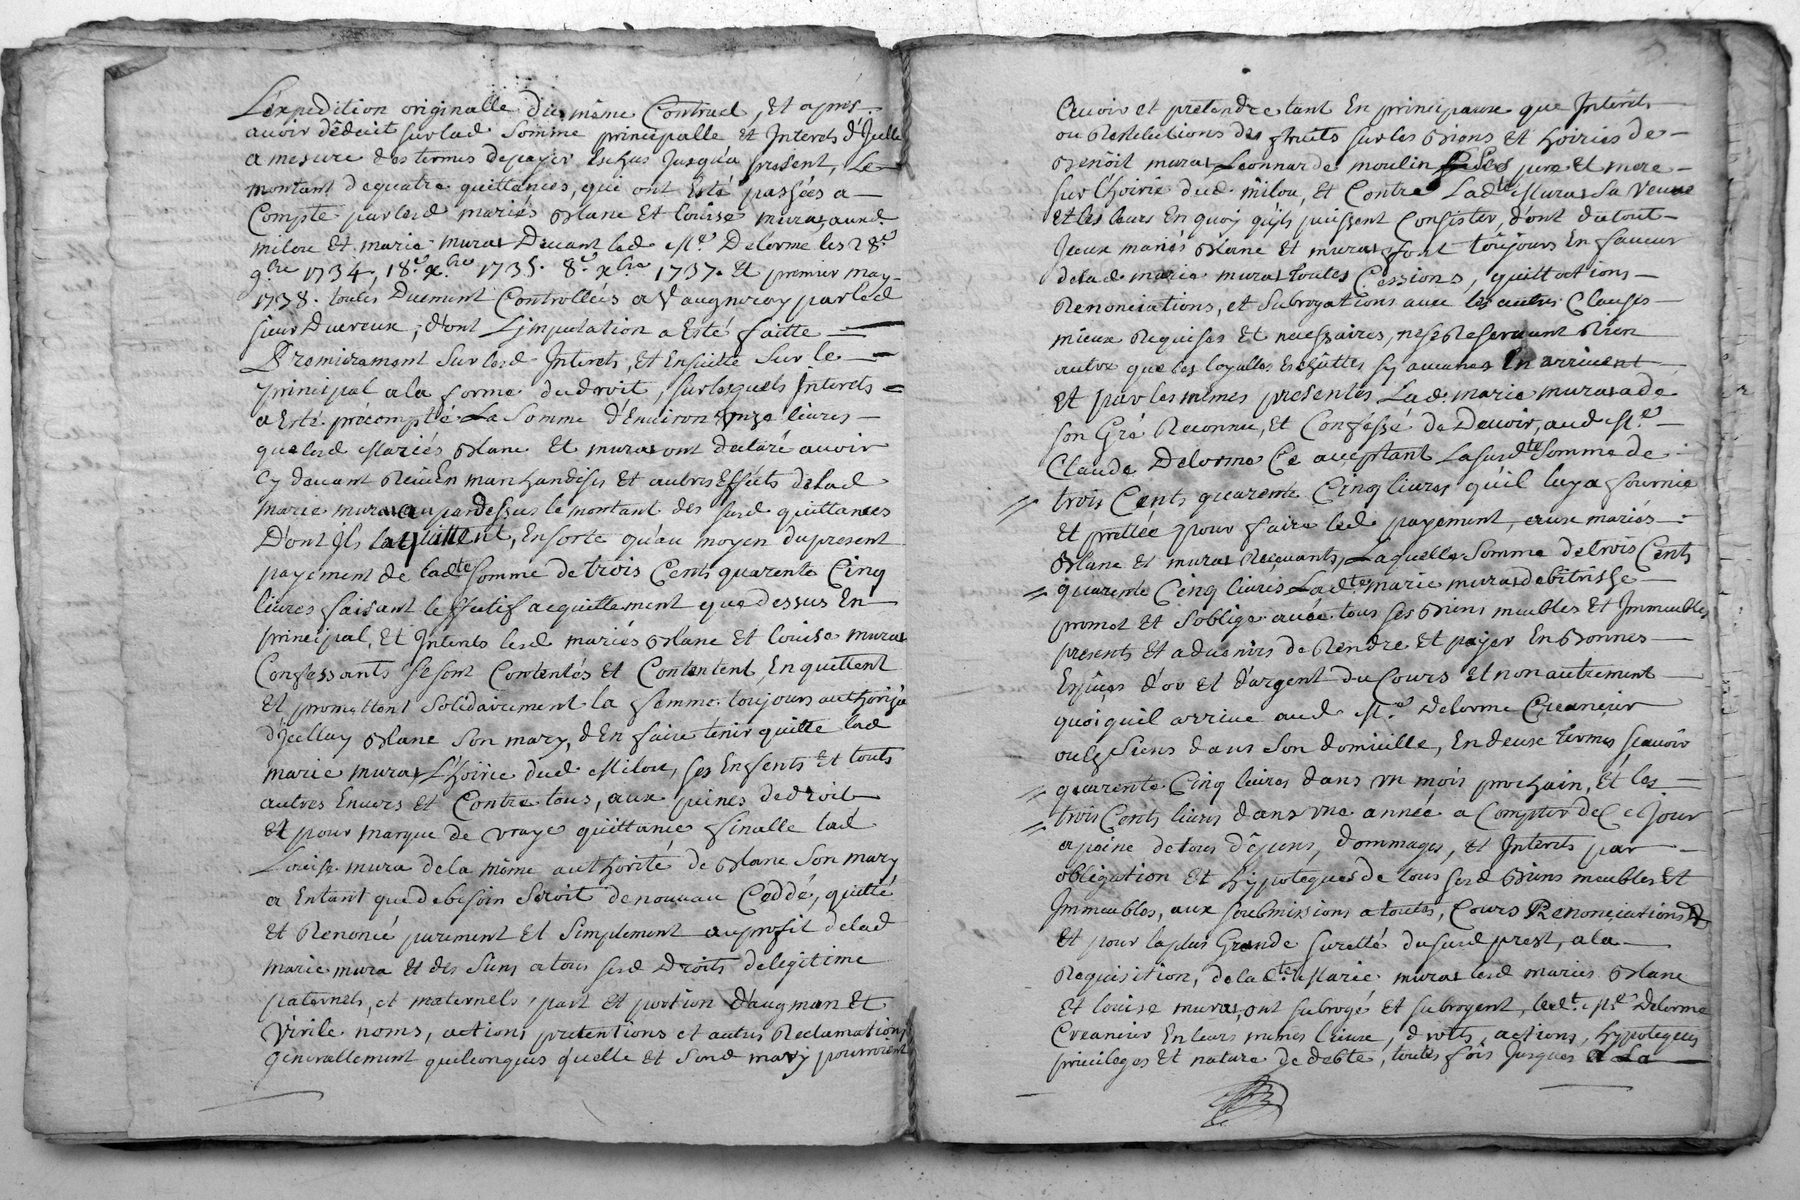 L'expedition originalle du même Contract, Et apres
avoir déduit sur lad. Somme principalle Et Interets d'Icelle
a mesure des termes de payer Eschus Jusqu'a present, Le
montant de quatre quittances, qui ont Esté passées a
Compte par lesd mariés Blanc Et Louise muras aud
milou Et marie muras Devant led Me Delorme les 28e
9bre 1734. 18e xbre 1735. 8e xbre 1737. Et premier may
1738. toutes Duement Controllées a Vaugneray par led
sieur Duvreux, d'ont L'imputation a Esté faitte
Premierement Sur lesd Interets, Et Ensuitte Sur le
principal a la forme du droit, Sur lesquels Interets
a Esté precompté La Somme d'Environ onze livres
que lesd Mariés Blanc Et muras ont declaré avoir
Cy devant Reçu En marchandises Et autres Effets de lad
marie muras au pardessus le montant des susd quittances
D'ont Ils la quittent, En sorte qu'au moyen du present
payement de ladte Somme de trois Cents quarente Cinq
livres faisant le Effectif acquittement que dessus En
principal, Et Interets lesd mariés Blanc Et Louise muras
Confessants Se sont Contentés Et Contentent, En quittent
Et promettent Solidairement la femme toujours authorisée
d'Icelluy Blanc Son mary, d'En faire tenir quitte lad
marie muras L'hoirie dud Milou, Ses Enfents Et touts
autres Envers Et Contre tous, aux peines de droit
Et pour marque de vraye quittance finalle lad
Louise mura de la même authorité de Blanc Son mary
a Entant que de besoin Seroit de nouveau Ceddé, quitté
Et Renoncé purement Et Simplement au profit de lad
marie mura Et des Siens a tous sesd Droits de legitime
paternels, et maternels, part Et portion d'augman Et
Virile noms, actions, pretentions et autres Reclamations
Generallement quelconques qu'elle Et Sond mary pourroient
avoir et pretendre tant En principaux que Interets
ou Restitutions des fruits sur les Biens Et hoiries de
Benoit muras Leonnarde moulin Ses pere Et mere
sur l'hoirie dud milou, Et Contre Ladte Muras Sa Veuve
Et les leurs En quoy qu'ils puissent Consister, d'ont du tout
Iceux mariés Blanc Et muras font toujours En faveur
de lad marie muras toutes Cessions, quittations
Renonciations, et Subrogations avec les autres Clauses
mieux Requises Et necessaires, ne se Reservant Rien
autre que les loyalles Exquittes Sy aucunes En arrivent
Et par les mêmes presentes Lad. marie muras a de
son Gré Reconnu, Et Confessé de Devoir, aud Me
Claude Delorme Ce acceptant La susdte Somme de
trois Cents quarente Cinq livres qu'il luy a fournie
Et prettée pour faire led payement, ceux mariés
Blanc Et muras Reçevants, Laquelle Somme de trois Cents
quarente Cinq livres Ladte marie muras debitrisse
promet Et S'oblige avec tous Ses Biens meubles Et Immeubles
presents Et advenirs de Rendre Et payer En Bonnes
Espices d'or Et d'argent du Cours Et non autrement
quoi qu'il arrive aud Me Delorme Creancier
ou les Siens dans Son domicille, En deux termes sçavoir
quarente Cinq livres dans un mois prochain, Et les
trois Cents livres dans une année a Compter de Ce Jour
a peine de tous dépens, dommages, Et Interets par
obligation Et hypoteques de tous sesd Biens meubles Et
Immeubles, aux soubmissions a toutes Cours Renonciations &
Et pour la plus Grande suretté du susd prest, a la
Requisition, de ladte Marie muras lesd mariés Blanc
Et Louise muras, ont subrogé Et subrogent, ledt. Me Delorme
Creancier En leurs mêmes lieux, droits, actions, hypoteques
privileges Et nature de debte, toutes fois Jusques a La